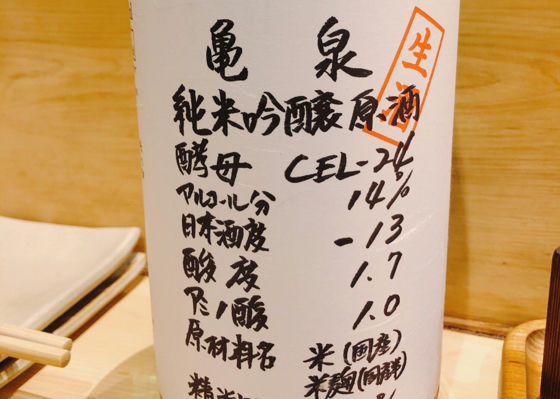 亀泉
生酒
純米吟醸原酒
酵母 CEL-24
アルコール分 14%
日本酒度 -13
酸度 1.7
アミノ酸 1.0
原材料名 米(国産)
米麹(国産米)
精米